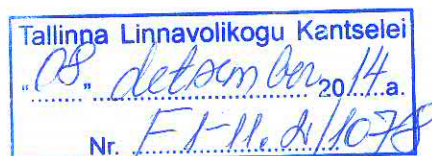 Tallinna Linnavolikogu Kantselei
"08" detsember 2014.a.
Nr. F1-11.2/1078